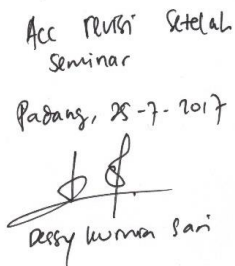 Acc revisi setelah
seminar
Padang, 25-7-2017
Dessy Kurnia Sari